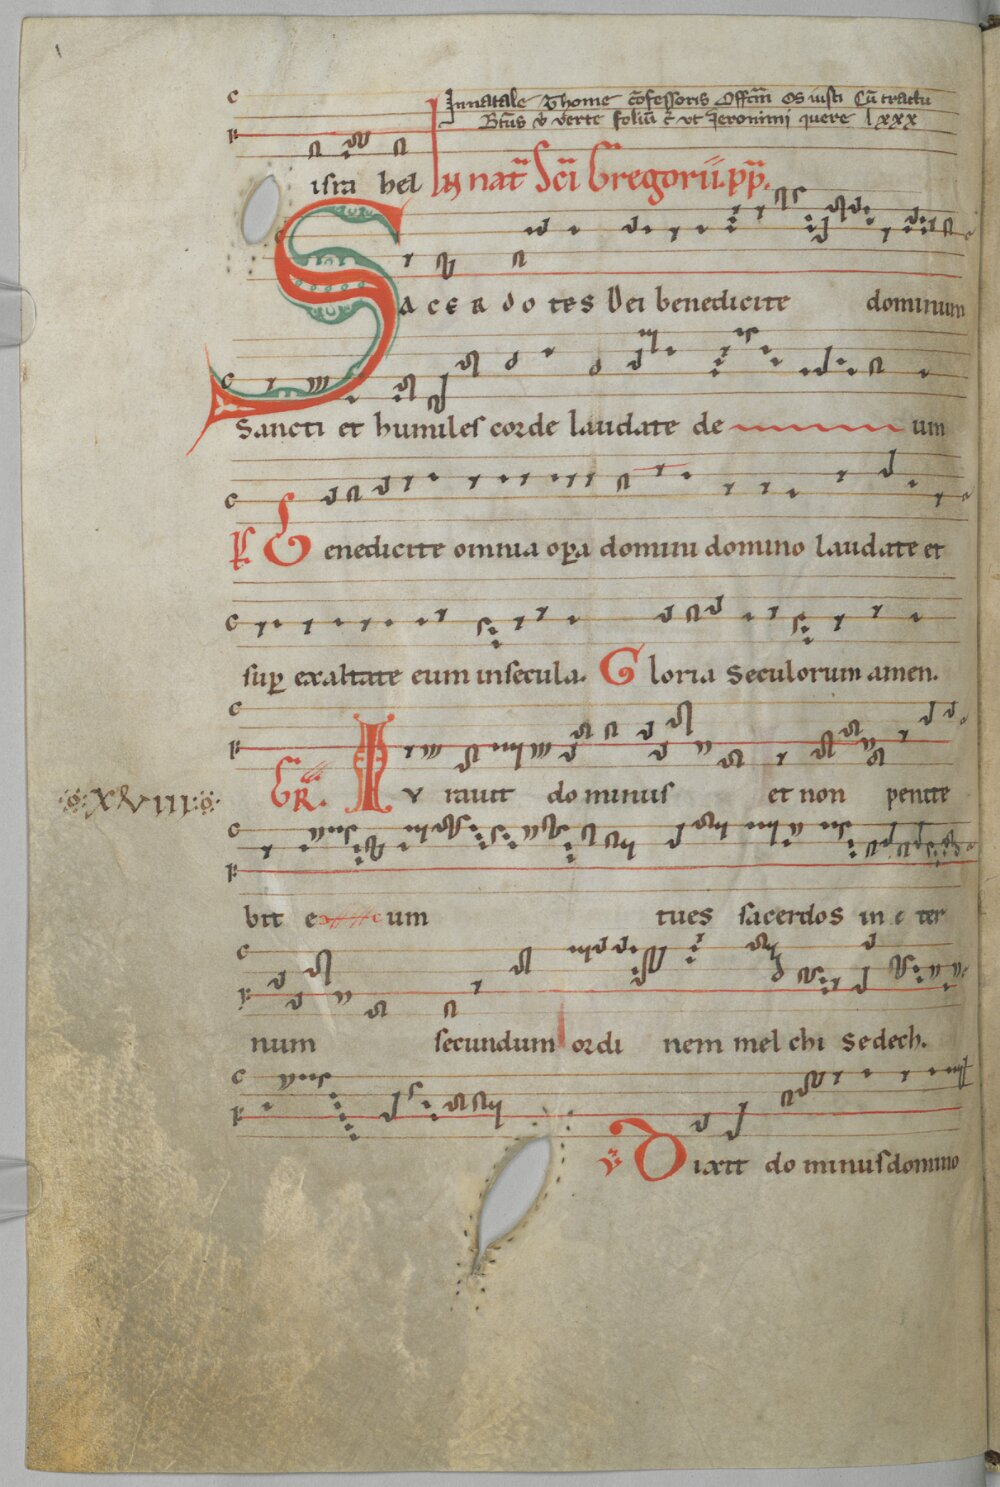 Innatale Thome c̄fessoris Offm̄ Os iusti Cū tractu
Bt̄us v̄ verte foliū c̄ vt Jeronimi quere lxxx
isra hel In nat̄ Sc̄i Gregorii. pp̄.
Sacerdotes Dei benedicite dominum
Sancti et humiles corde laudate de um
Ps Benedicite omnia op̱a domini domino laudate et
sup̱ exaltate eum insecula. Gloria seculorum amen.
XVIII GR. Iuravit dominus et non penite
bit e um tu es sacerdos in e ter
num secundum ordi nem mel chi sedech.
V Dixit do minus domino